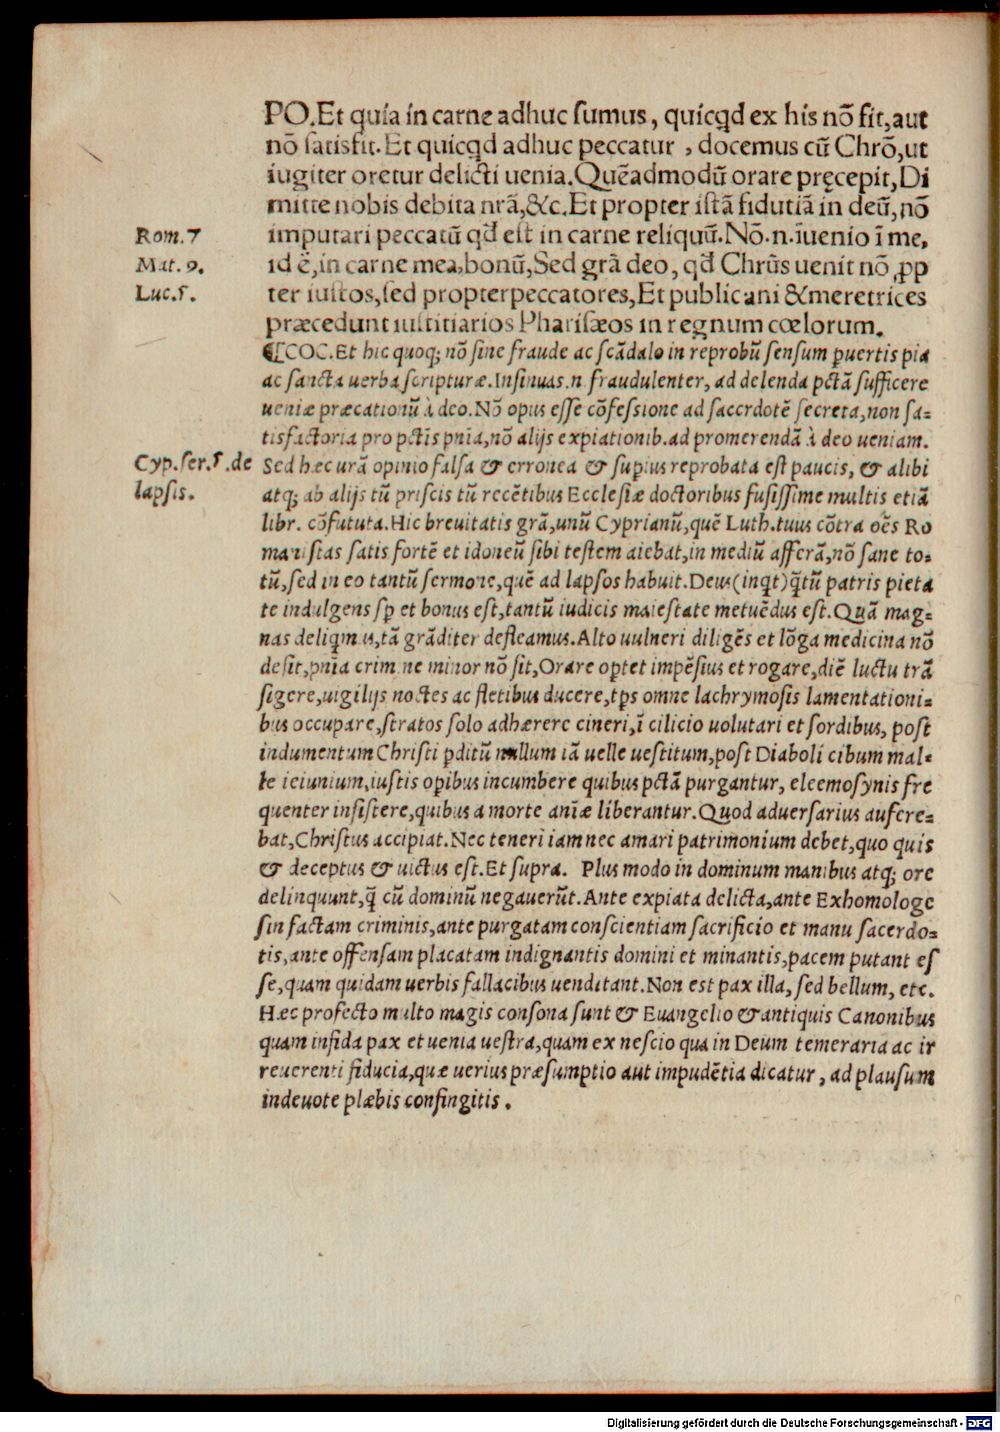 PO.Et quia in carne adhuc sumus, quicqd ex his nõ fit,aut
nõ satisfit.Et quicqd adhuc peccatur , docemus cũ Chrõ,ut
iugiter oretur delicti uenia.Quẽadmodũ orare pręcepit,Di
mitte nobis debita nrã,&c.Et propter istã fidutiã in deũ,nõ
Rom.7
imputari peccatũ qd est in carne reliquũ.Nõ.n.iuenio ĩ me,
Mat.9.
id ẽ,in carne mea,bonũ,Sed grã deo, qd Chrũs uenit nõ ꝓp
Luc.5.
ter iustos,sed propter peccatores,Et publicani & meretrices
præcedunt iustitiarios Pharisæos in regnum cœlorum.
¶COC.Et hic quoqꝫ nõ sine fraude ac scãdalo in reprobũ sensum puertis pia
ac sancta uerba scripturæ.Insinuas.n.fraudulenter, ad delenda pctã sufficere
ueniæ præcationũ à deo.Nõ opus esse cõfessione ad sacerdotẽ secreta,non sa=
tisfactoria pro pctĩs pnĩa,nõ alijs expiationib.ad promerendã à deo ueniam.
Cyp.ser.5.de
lapsis.
Sed hæc urã opinio falsa & erronea & supius reprobata est paucis, & alibi
atqꝫ ab alijs tũ priscis tũ recẽtibus Ecclesiæ doctoribus fusissime multis etiã
libr. cõfutata.Hic breuitatis grã,unũ Cyprianũ,quẽ Luth.tuus cõtra oẽs Ro
manistas satis fortẽ et idoneũ sibi testem aiebat,in mediũ afferã,nõ sane to=
tũ,sed in eo tantũ sermone,quẽ ad lapsos habuit.Deus(inqt)q̃tũ patris pieta
te indulgens sp et bonus est,tantũ iudicis maiestate metuẽdus est.Quã mag=
nas deliqmus,tã grãditer defleamus.Alto uulneri diligẽs et lõga medicina nõ
desit,pnĩa crimine minor nõ sit,Orare optet impẽsius et rogare,diẽ luctu trã
sigere,uigilijs noctes ac fletibus ducere,tps omne lachrymosis lamentationi=
bus occupare,stratos solo adhærere cineri,ĩ cilicio uolutari et sordibus, post
indumentum Christi pditũ nullum iã uelle uestitum,post Diaboli cibum mal=
le ieiunium,iustis opibus incumbere quibus pctã purgantur, eleemosynis fre
quenter insistere,quibus a morte anĩæ liberantur.Quod aduersarius aufere=
bat,Christus accipiat.Nec teneri iam nec amari patrimonium debet,quo quis
& deceptus & uictus est.Et supra. Plus modo in dominum manibus atqꝫ ore
delinquunt,q̃ cũ dominũ negauerũt.Ante expiata delicta,ante Exhomologe
sin factam criminis,ante purgatam conscientiam sacrificio et manu sacerdo=
tis,ante offensam placatam indignantis domini et minantis,pacem putant es
se,quam quidam uerbis fallacibus uenditant.Non est pax illa, sed bellum, etc.
Hæc profecto multo magis consona sunt & Euangelio & antiquis Canonibus
quam infida pax et uenia uestra,quam ex nescio qua in Deum temeraria ac ir
reuerenti fiducia,quæ uerius præsumptio aut impudẽtia dicatur, ad plausum
indeuote plæbis confingitis.
Digitalisierung gefördert durch die Deutsche Forschungsgemeinschaft - DFG